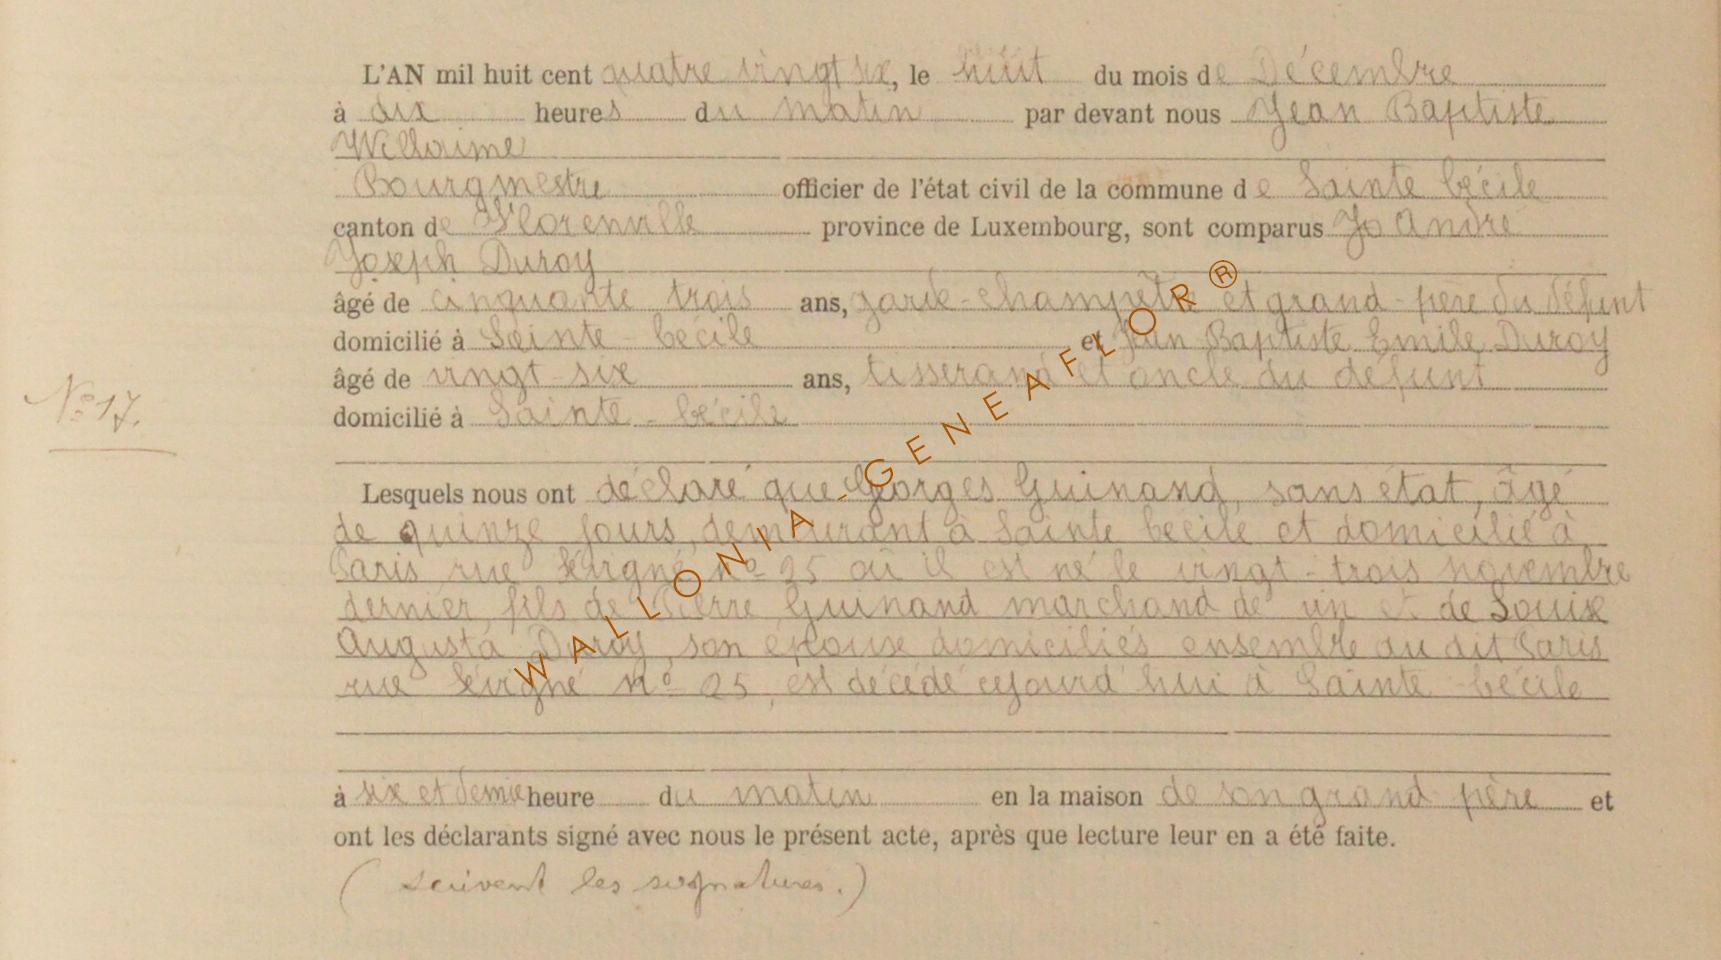 L'AN mil huit cent quatre vingt six, le huit du mois de Décembre
à dix heures du matin par devant nous Jean Baptiste
Willaime
Bourgmestre officier de l'état civil de la commune de Sainte Cécile
canton de Florenville province de Luxembourg, sont comparus Jo André
Joseph Duroy
âgé de cinquante trois ans, garde-champêtre et grand-père du défunt
domicilié à Sainte-Cécile et Jean Baptiste Emile Duroy
âgé de vingt-six ans, tisserand et oncle du défunt
N° 17.
domicilié à Sainte-Cécile
Lesquels nous ont déclaré que Georges Guinand, sans état, âgé
de quinze jours, demeurant à Sainte Cécile et domicilié à
Paris rue Sévigné n° 25 où il est né le vingt-trois novembre
dernier, fils de Pierre Guinand marchand de vin et de Louise
Augusta Duroy, son épouse domiciliés ensemble au dit Paris
rue Sévigné n° 25, est décédé cejourd'hui à Sainte-Cécile
à six et demie heure du matin en la maison de son grand père et
ont les déclarants signé avec nous le présent acte, après que lecture leur en a été faite.
(suivent les signatures.)
WALLONIA-GENEAFLOR®